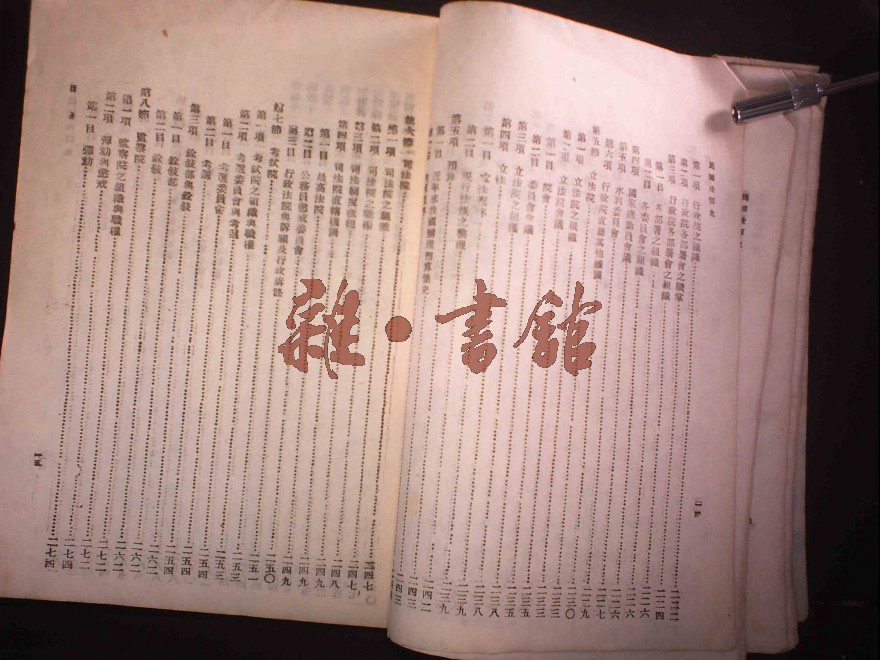 民國政制史
第一項 行政院之組織 二二二
第二項 行政院各部署會之職掌 二二四
第三項 行政院各部署會之組織
第一目 各部署之組織 二二六
第二目 各委員會之組織 二二六
第四項 國家總動員會議 二二六
第五項 水利委員會 二二六
第六項 行政院直轄其他機關 二二七
第五節 立法院 二二九
第一項 立法院之組織 二三〇
第二項 立法院會議 二三三
第一目 院會 二三三
第二目 委員會會議 二三五
第三項 立法院之職權 二三五
第四項 立法 二三八
第一目 立法程序 二三八
第二目 現行法規之整理 二三九
第五項 預算 二三九
第一目 近年來我國辦理預算簡史 二四二
二四三
第六節 司法院 二四七
第一項 司法院之組織 二四七
第二項 司法院之職權 二四七
第三項 司法制度概況 二四八
第四項 司法院直轄機關 二四九
第一目 最高法院 二四九
第二目 公務員懲戒委員會 二四九
第三目 行政法院與訴願及行政訴訟 二五〇
第七節 考試院 二五一
第一項 考試院之組織與職權 二五一
第二項 考選委員會與考選 二五三
第一目 考選委員會 二五四
第二目 考選 二五四
第三項 銓敍部與銓敍 二五四
第一目 銓敍部 二五四
第二目 銓敍 二六二
第八節 監察院 二六二
第一項 監察院之組織與職權 二六二
第二項 彈劾與懲戒 二七二
第一目 彈劾 二七四
目
一五
雜·書館